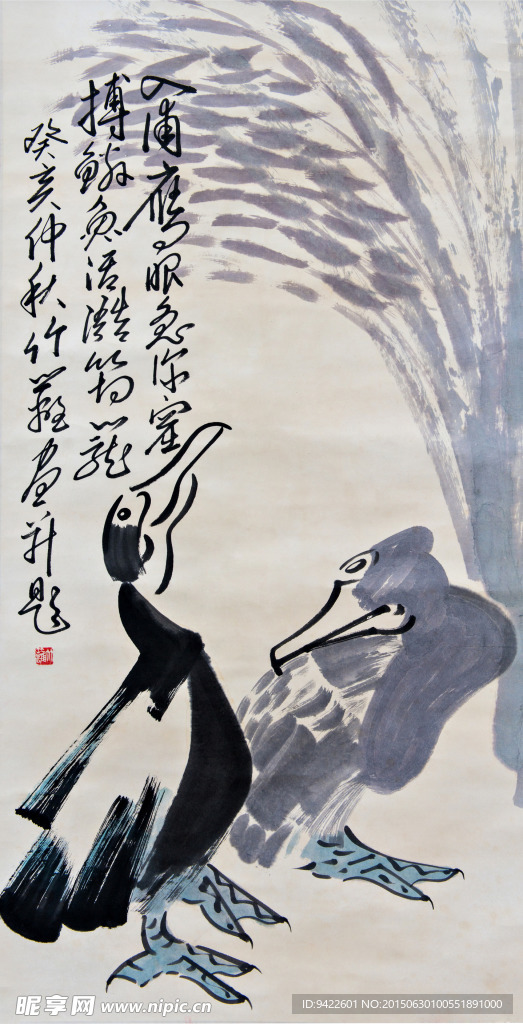 入浦鹰眼急深
搏鳞鱼活筠籠
癸亥仲秋竹画并題
昵享网 www.nipic.cn
ID:9422601 NO:20150630100551891000